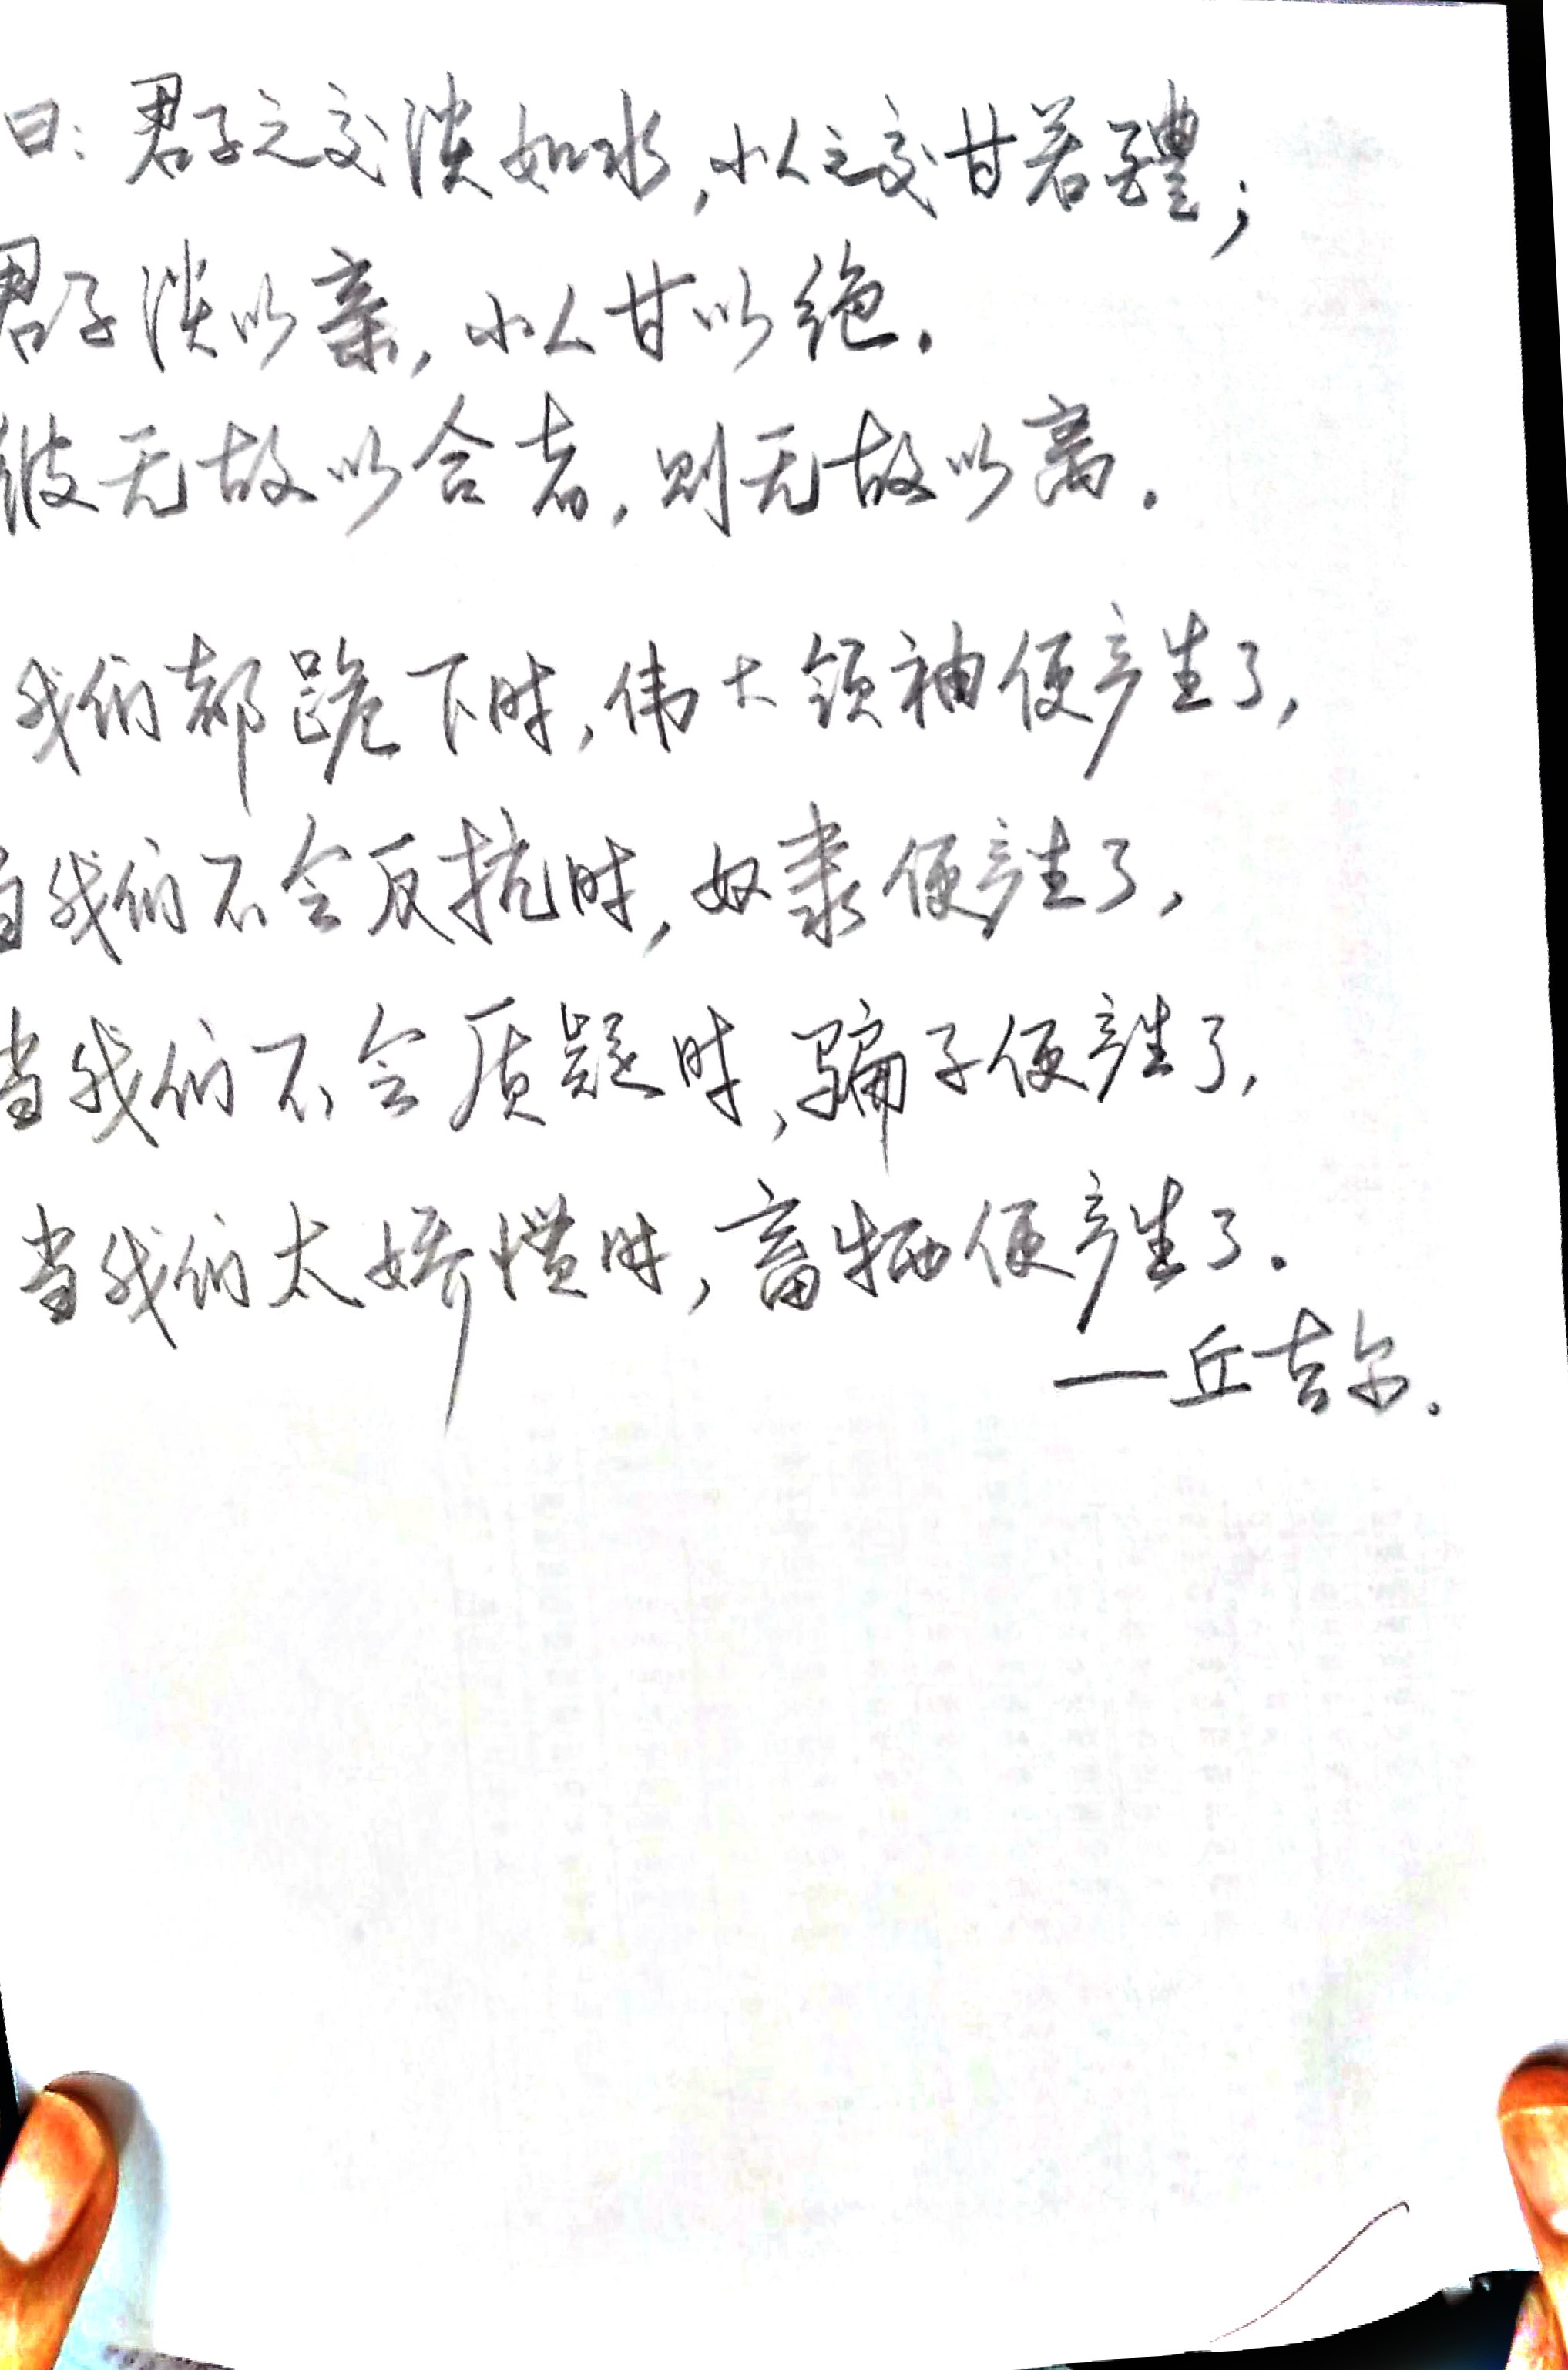 曰：君子之交淡如水，小人之交甘若醴；
君子淡以亲，小人甘以绝。
彼无故以合者，则无故以离。
我们都跪下时，伟大领袖便产生了，
当我们不会反抗时，奴隶便产生了，
当我们不会质疑时，骗子便产生了，
当我们太娇惯时，畜牲便产生了。
—丘吉尔.